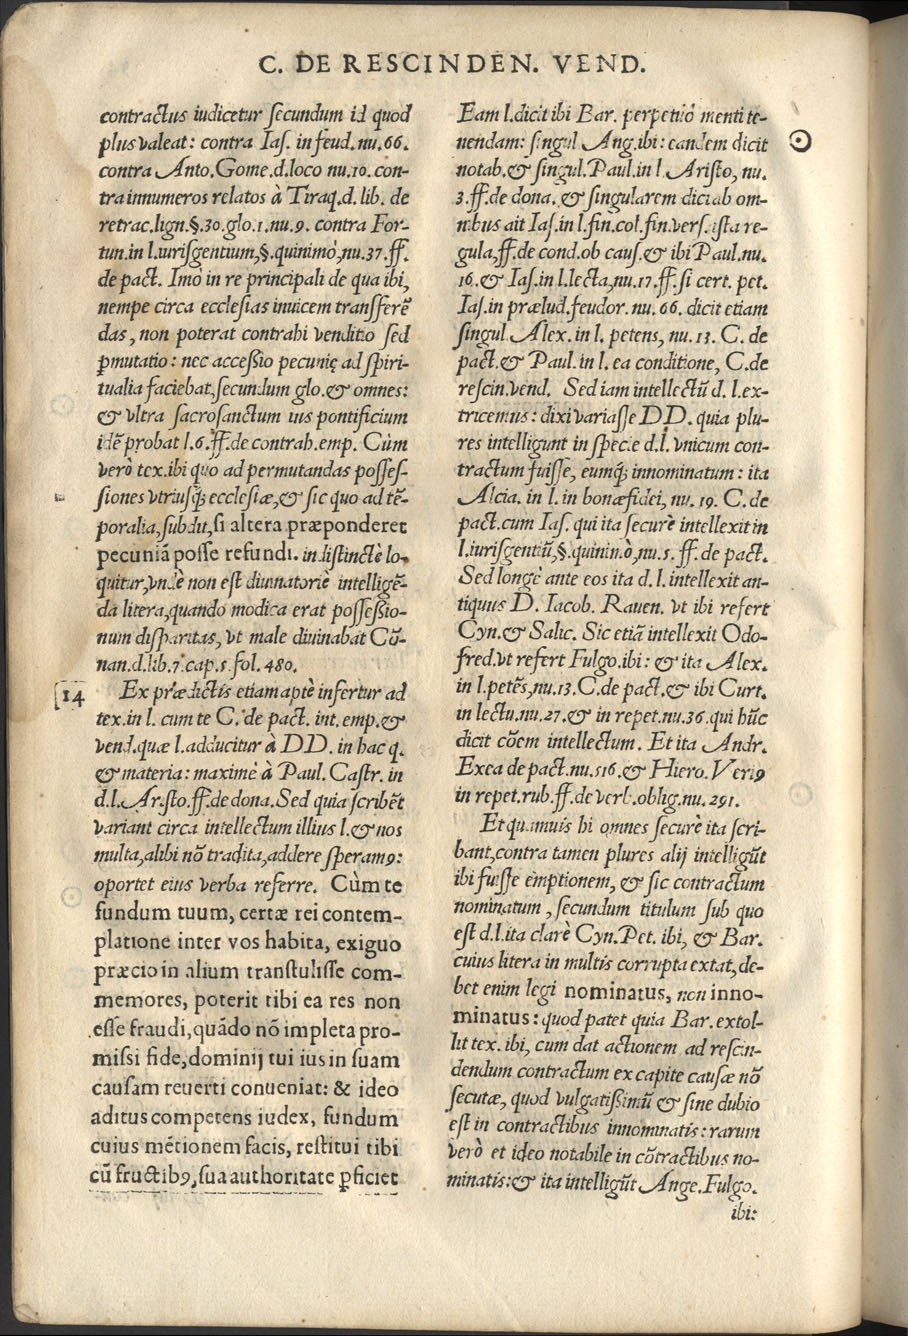 C. DE RESCINDEN. VEND.
contractus iudicetur secundum id quod
plus valeat: contra Ias. in feud. nu. 66.
contra Anto. Gome. d. loco nu. 10. con-
tra innumeros relatos à Tiraq. d. lib. de
retrac. lign. §. 30. glo. 1. nu. 9. contra For-
tun. in l. iurisgentium, §. quinimò, nu. 37. ff.
de pact. Imò in re principali de qua ibi,
nempe circa ecclesias inuicem transferē
das, non poterat contrahi venditio sed
ꝑmutatio: nec accessio pecunię ad spiri-
tualia faciebat, secundum glo. & omnes:
& vltra sacrosanctum ius pontificium
idē probat l. 6. ff. de contrah. emp. Cùm
verò tex. ibi quo ad permutandas posses-
siones vtriusq; ecclesiæ, & sic quo ad tē-
poralia, subdit, si altera præponderet
pecuniā posse refundi. indistinctè lo-
quitur, vndè non est diuinatoriè intelligē-
da litera, quando modica erat possessio-
num disparitas, vt male diuinabat Cū-
nan. d. lib. 7. cap. 5. fol. 480.
14 Ex prædictis etiam aptè infertur ad
tex. in l. cum te C. de pact. int. emp. &
vend. quæ l. adducitur à DD. in hac q.
& materia: maximè à Paul. Castr. in
d. l. Aristo. ff. de dona. Sed quia scribēt
variant circa intellectum illius l. & nos
multa, alibi nō tradita, addere speramꝰ:
oportet eius verba referre. Cùm te
fundum tuum, certæ rei contem-
platione inter vos habita, exiguo
præcio in alium transtulisse com-
memores, poterit tibi ea res non
esse fraudi, quādo nō impleta pro-
missi fide, dominij tui ius in suam
causam reuerti conueniat: & ideo
aditus competens iudex, fundum
cuius mētionem facis, restitui tibi
cū fructibꝰ, sua authoritate ꝑficiet
Eam l. dicit ibi Bar. perpetiò menti te-
nendam: singul. Ang. ibi: eandem dicit
notab. & singul. Paul. in l. Aristo, nu.
3. ff. de dona. & singularem dici ab om-
nibus ait Ias. in l. fin. col. fin. vers. ista re-
gula, ff. de cond. ob caus. & ibi Paul. nu.
16. & Ias. in l. lecta, nu. 17. ff. si cert. pet.
Ias. in prælud. feudor. nu. 66. dicit etiam
singul. Alex. in l. petens, nu. 13. C. de
pact. & Paul. in l. ea conditione, C. de
rescin. vend. Sed iam intellectū d. l. ex-
tricemus: dixi variasse DD. quia plu-
res intelligunt in specie d. l. vnicum con-
tractum fuisse, eumq; innominatum: ita
Alcia. in l. in bonæfidei, nu. 19. C. de
pact. cum Ias. qui ita securè intellexit in
l. iurisgentiū, §. quinimò, nu. 5. ff. de pact.
Sed longè ante eos ita d. l. intellexit an-
tiquus D. Iacob. Rauen. vt ibi refert
Cyn. & Salic. Sic etiā intellexit Odo-
fred. vt refert Fulgo. ibi: & ita Alex.
in l. petēs, nu. 13. C. de pact. & ibi Curt.
in lectu. nu. 27. & in repet. nu. 36. qui hūc
dicit cōem intellectum. Et ita Andr.
Exea de pact. nu. 516. & Hiero. Verꝰ
in repet. rub. ff. de verb. oblig. nu. 291.
Et quamuis hi omnes securè ita scri-
bant, contra tamen plures alij intelligūt
ibi fuisse emptionem, & sic contractum
nominatum, secundum titulum sub quo
est d. l. ita clarè Cyn. Pet. ibi, & Bar.
cuius litera in multis corrupta extat, de-
bet enim legi nominatus, non inno-
minatus: quod patet quia Bar. extol-
lit tex. ibi, cum dat actionem ad rescin-
dendum contractum ex capite causæ nō
secutæ, quod vulgatissimū & sine dubio
est in contractibus innominatis: rarum
verò et ideo notabile in cōtractibus no-
minatis: & ita intelligūt Ange. Fulgo.
ibi: